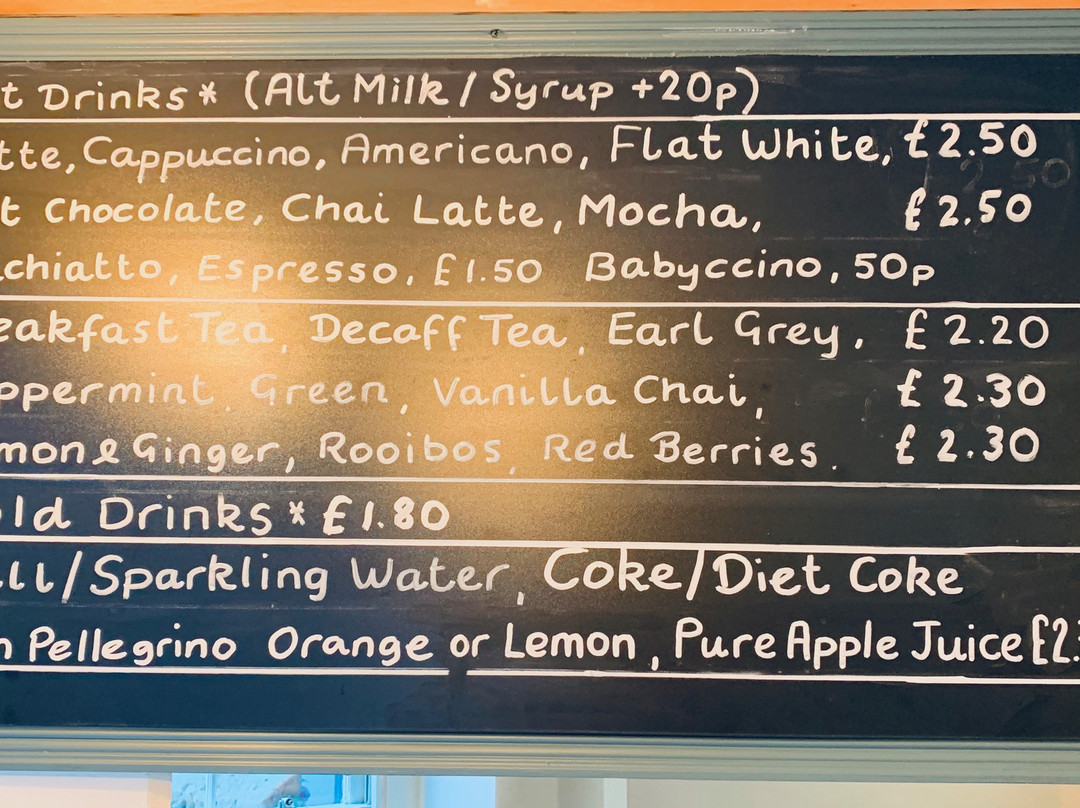 t Drinks* (Alt Milk / Syrup +20p)
tte, Cappuccino, Americano, Flat White, £2.50
t Chocolate, Chai Latte, Mocha, £2.50
chiatto, Espresso, £1.50 Babyccino, 50p
eakfast Tea, Decaff Tea, Earl Grey, £2.20
ppermint, Green, Vanilla Chai, £2.30
mon & Ginger, Rooibos, Red Berries. £2.30
ld Drinks * £1.80
ll/Sparkling Water, Coke/Diet Coke
n Pellegrino Orange or Lemon, Pure Apple Juice £2.